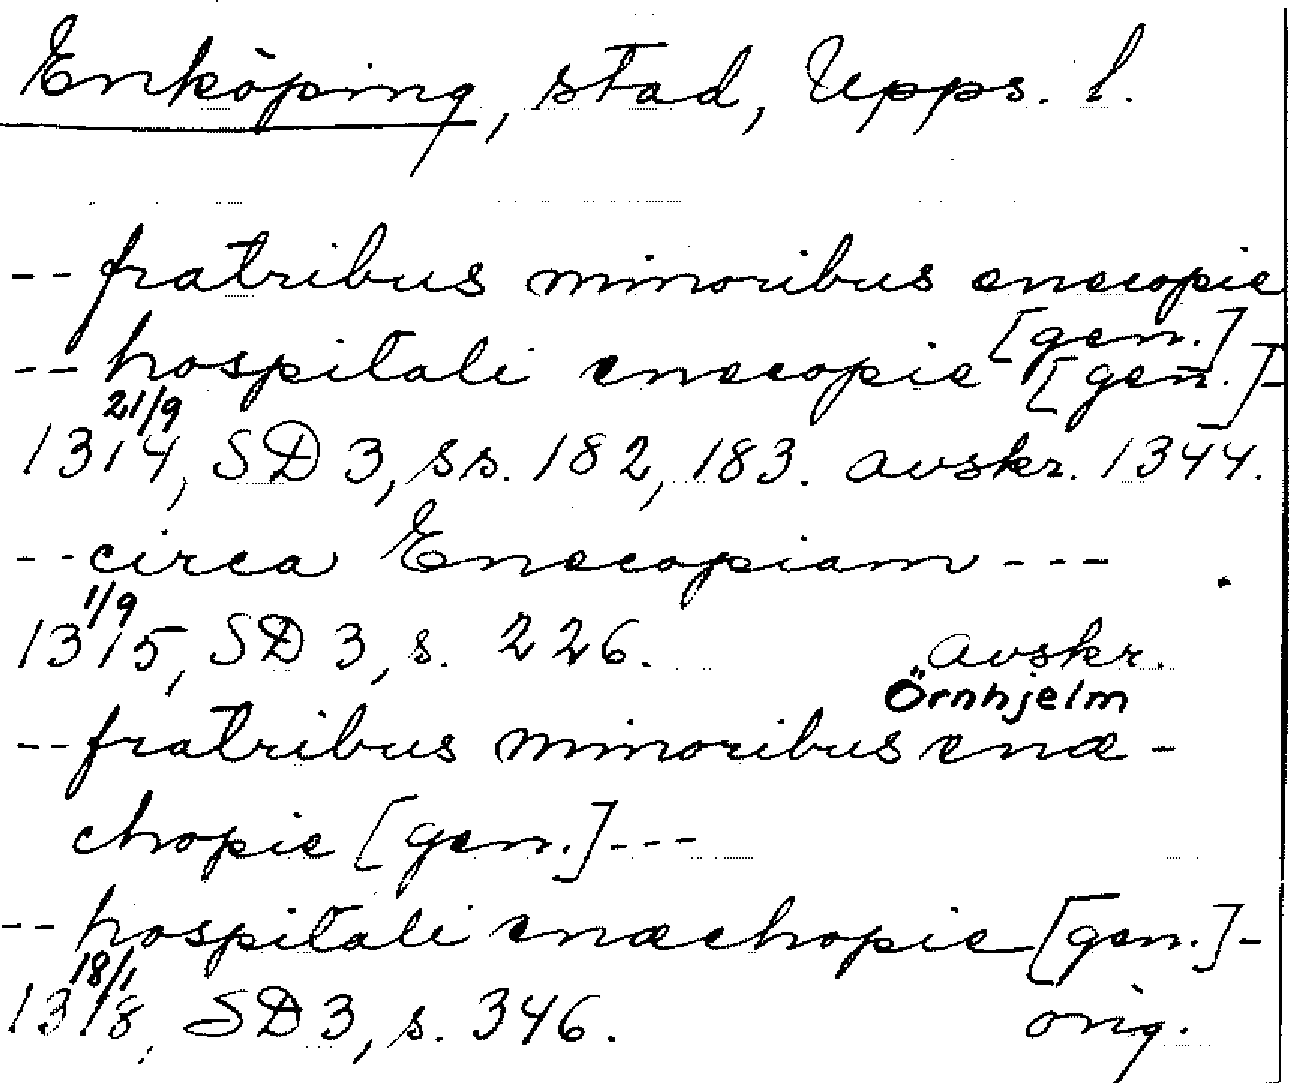 Enköping, stad, Upps. l.
-- fratribus minoribus enecopie
[gen.] -
-- hospitali enecopie [gen.] -
21/9
1314, SD 3, ss. 182, 183. avskr. 1344.
-- circa Enecopiam ---
1/9
1315, SD 3, s. 226. avskr.
Örnhjelm
-- fratribus minoribus enæ-
chopie [gen.] ---
-- hospitali enæchopie [gen.] -
18/1
1318, SD 3, s. 346. orig.